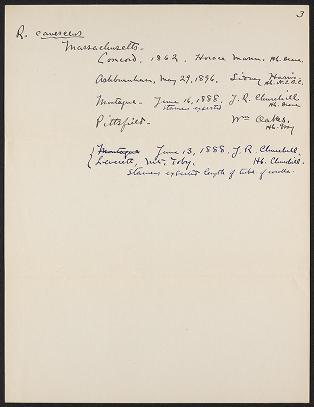 3
R. canescens
Massachusetts.
Concord, 1862, Horace Mann. Hb. Deane.
Ashburnham, May 29, 1896. Sidney Harris.
Hb. N.E.B.C.
Montague - June 16, 1888, J. R. Churchill
stamens exserted Hb. Deane
Pittsfield - Wm Oakes.
Hb. Gray
Montague June 13, 1888, J. R. Churchill.
Leverett, Mt. Toby. Hb. Churchill.
stamens exserted length of tube of corolla.